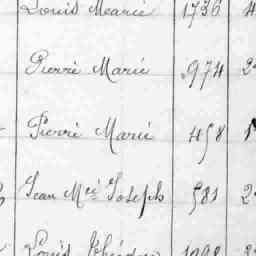 Louis Marie 1736 4
Pierre Marie 974 2
Pierre Marie 458 1
Jean Mce Joseph 581 2
Louis 1098 2